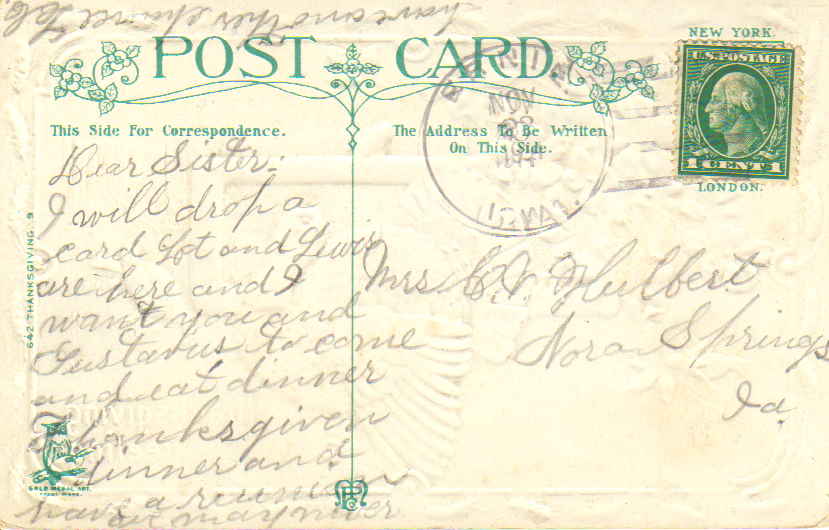 have another chance L G
NEW YORK.
POST CARD.
U.S. POSTAGE
1 CENT 1
LONDON.
NOV
23
IOWA.
This Side For Correspondence.
The Address To Be Written
On This Side.
Dear Sister:
I will drop a
card Lot and Lewis
are here and I
want you and
Gustavus to come
and eat dinner
Thanksgiven
dinner and
have a reunion
as may never
Mrs C. V. Hulbert
Nora Springs
Ia.
642-THANKSGIVING. 9
GOLD MEDAL ART.
TRADE MARK.